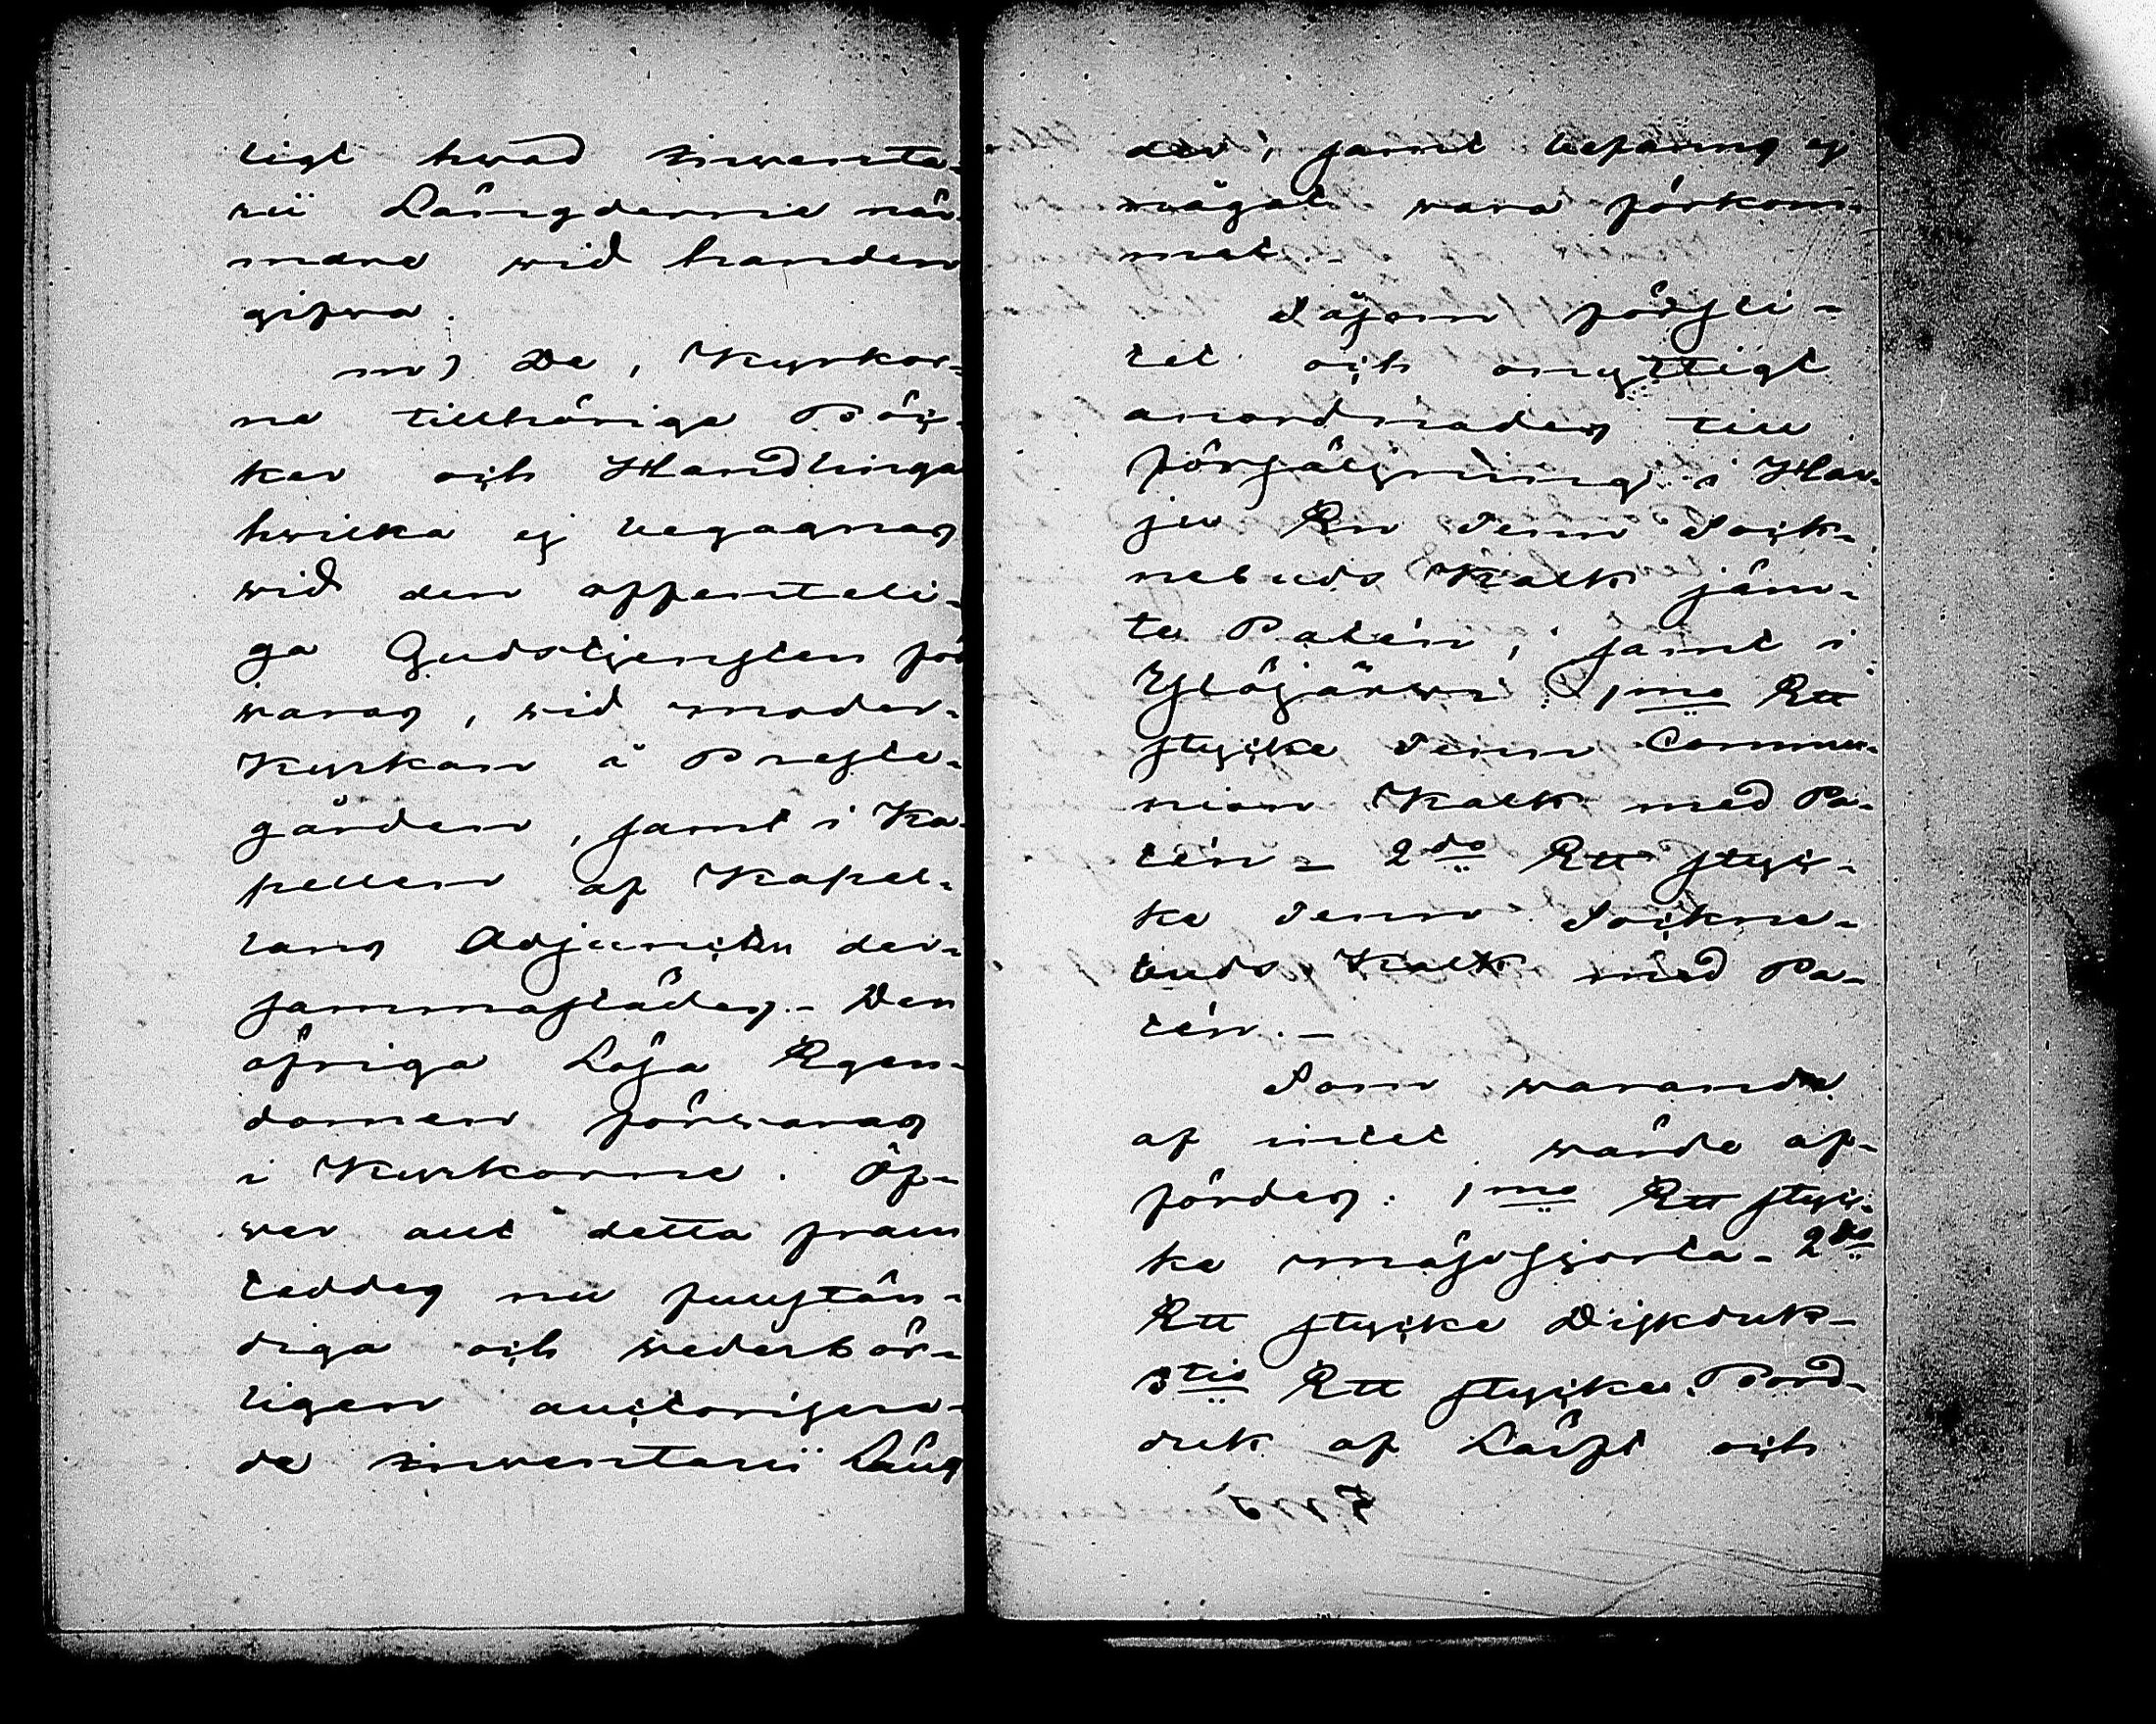 ligt hwad Inwenta-
rii Längderne när-
mare wid handen
gifwa.
m) De, Kyrkor-
na tillhöriga Böc-
ker och Handlingar
hwilka ej begagnas
wid den offenteli-
ga Gudstjensten för
waras, wid moder-
Kyrkan å Preste-
gården, samt i Ka-
pellen af Kapel-
lans Adjuncten der-
sammastädes. - Den
öfriga Lösa Egen-
domen förwaras
i Kyrkorne. Öf-
wer allt detta fram
teddes nu fullstän-
diga och wederbör-
ligen auctoriserа-
de Inwentarii Läng
der, samt befanns ej
något wara förkom-
met.
Såsom försli-
tet och onyttigt
anordnades till
försäljning i Har-
ju En Tenn Sock-
nebuds Kalk jäm-
te Patén, samt i
Ylöjärwi 1mo Ett
stycke Tenn Commu-
nion Kalk med Pa-
tén - 2do Ett styc-
ke Tenn Sockne-
buds Kalk med Pa-
tén. -
Som warande
af intet wärde af-
fördes: 1mo Ett styc-
ke mässhjorta - 2do
Ett stycke Diskduk -
3tio Ett stycke Bord-
duk af Lärft och